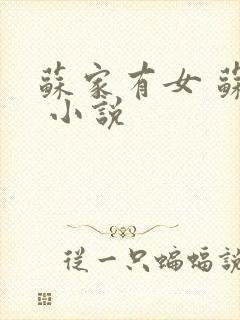 蘇家有女 蘇
小說
從一只蝙蝠說